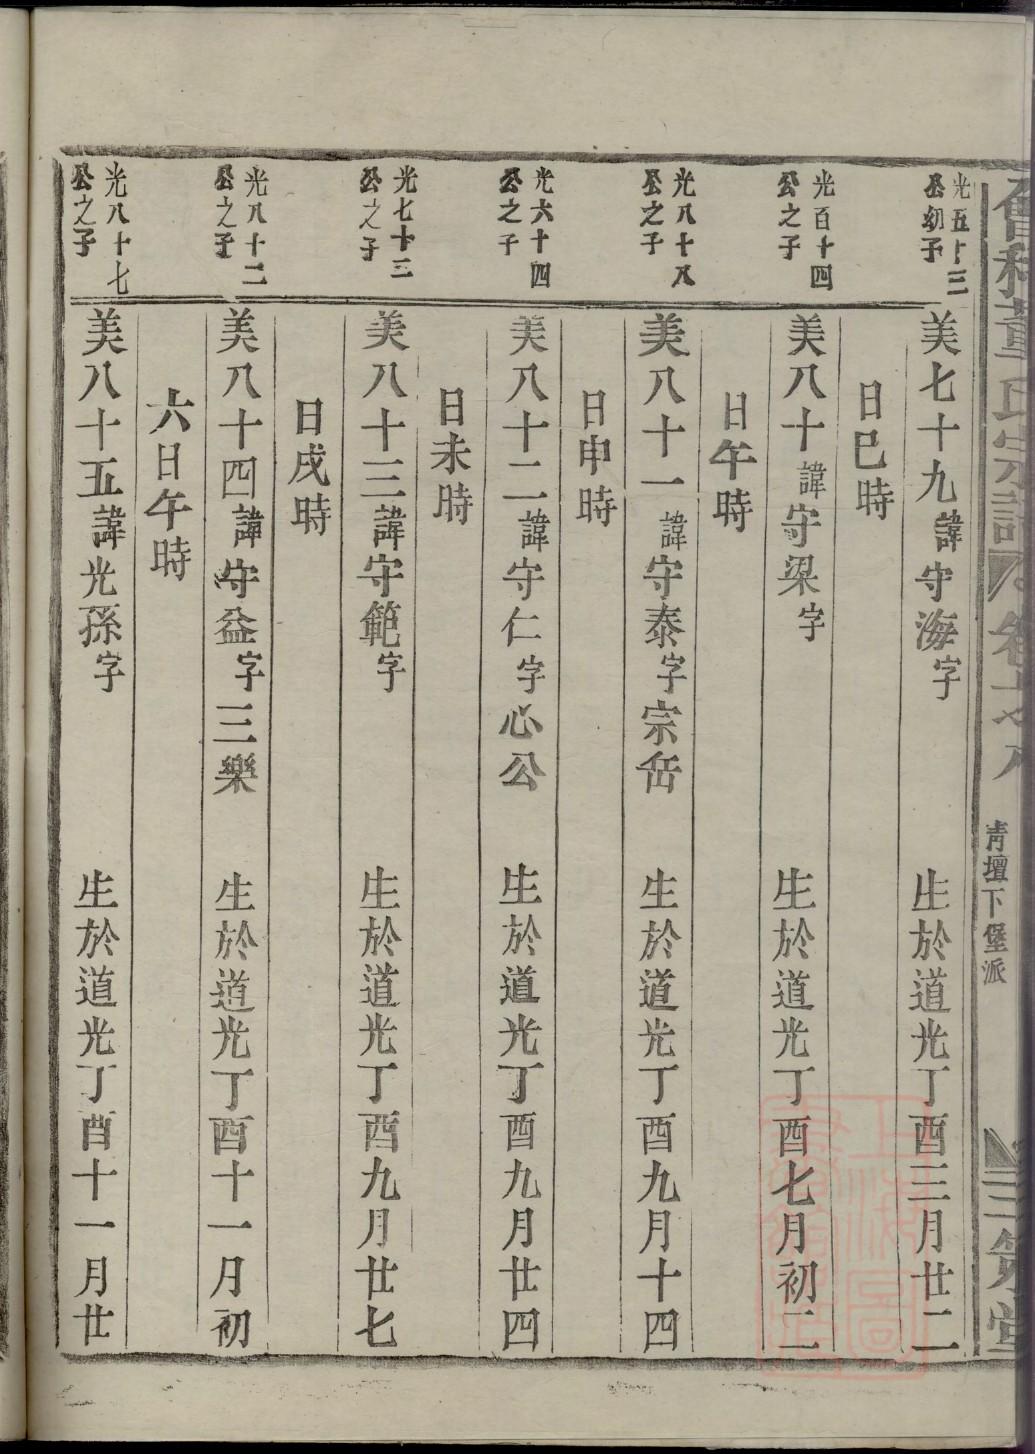 董氏宗譜 卷十八 青壇下堡派 三策堂
光五十三
公幼子
美七十九諱守海字 生於道光丁酉三月廿二
日巳時
光百十四
公之子
美八十諱守梁字 生於道光丁酉七月初二
日午時
光八十八
公之子
美八十一諱守泰字宗岳 生於道光丁酉九月十四
日申時
光六十四
公之子
美八十二諱守仁字心公 生於道光丁酉九月廿四
日未時
光七十三
公之子
美八十三諱守範字 生於道光丁酉九月廿七
日戌時
光八十二
公之子
美八十四諱守益字三樂 生於道光丁酉十一月初
六日午時
光八十七
公之子
美八十五諱光孫字 生於道光丁酉十一月廿